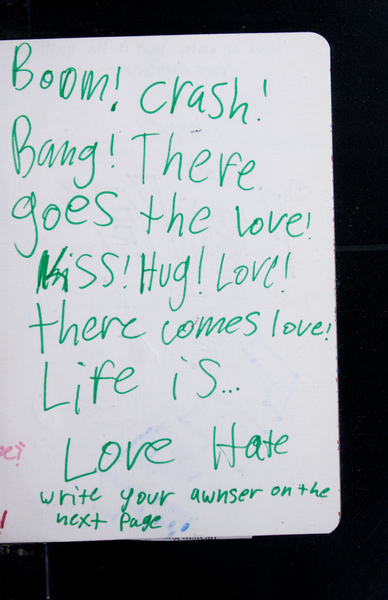 Boom! crash!
Bang! There
goes the love!
Kiss! Hug! Love!
there comes love!
Life is...
Love Hate
write your awnser on the
next page